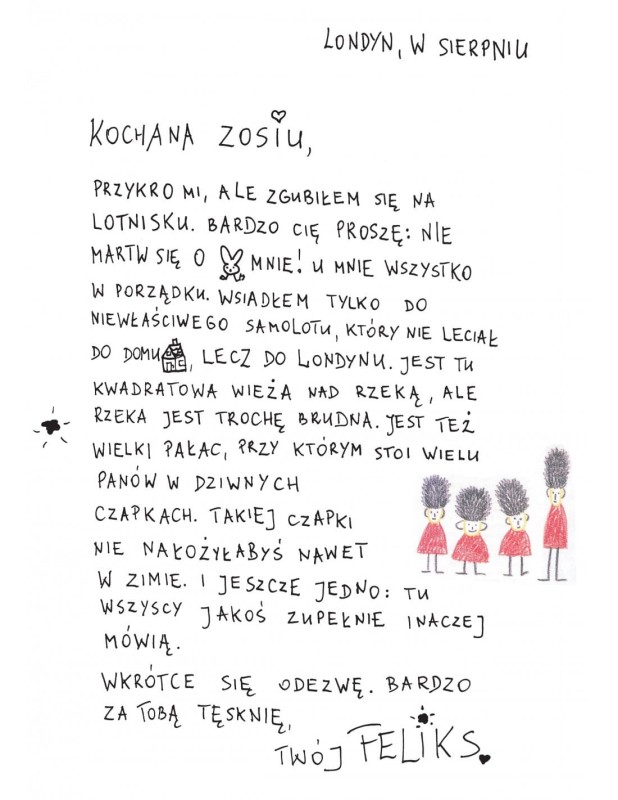 LONDYN, W SIERPNIU
KOCHANA ZOSIU,
PRZYKRO MI, ALE ZGUBIŁEM SIĘ NA
LOTNISKU. BARDZO CIĘ PROSZĘ: NIE
MARTW SIĘ O MNIE! U MNIE WSZYSTKO
W PORZĄDKU. WSIADŁEM TYLKO DO
NIEWŁAŚCIWEGO SAMOLOTU, KTÓRY NIE LECIAŁ
DO DOMU, LECZ DO LONDYNU. JEST TU
KWADRATOWA WIEŻA NAD RZEKĄ, ALE
RZEKA JEST TROCHĘ BRUDNA. JEST TEŻ
WIELKI PAŁAC, PRZY KTÓRYM STOI WIELU
PANÓW W DZIWNYCH
CZAPKACH. TAKIEJ CZAPKI
NIE NAŁOŻYŁABYŚ NAWET
W ZIMIE. I JESZCZE JEDNO: TU
WSZYSCY JAKOŚ ZUPEŁNIE INACZEJ
MÓWIĄ.
WKRÓTCE SIĘ ODEZWĘ. BARDZO
ZA TOBĄ TĘSKNIĘ,
TWÓJ FELIKS.